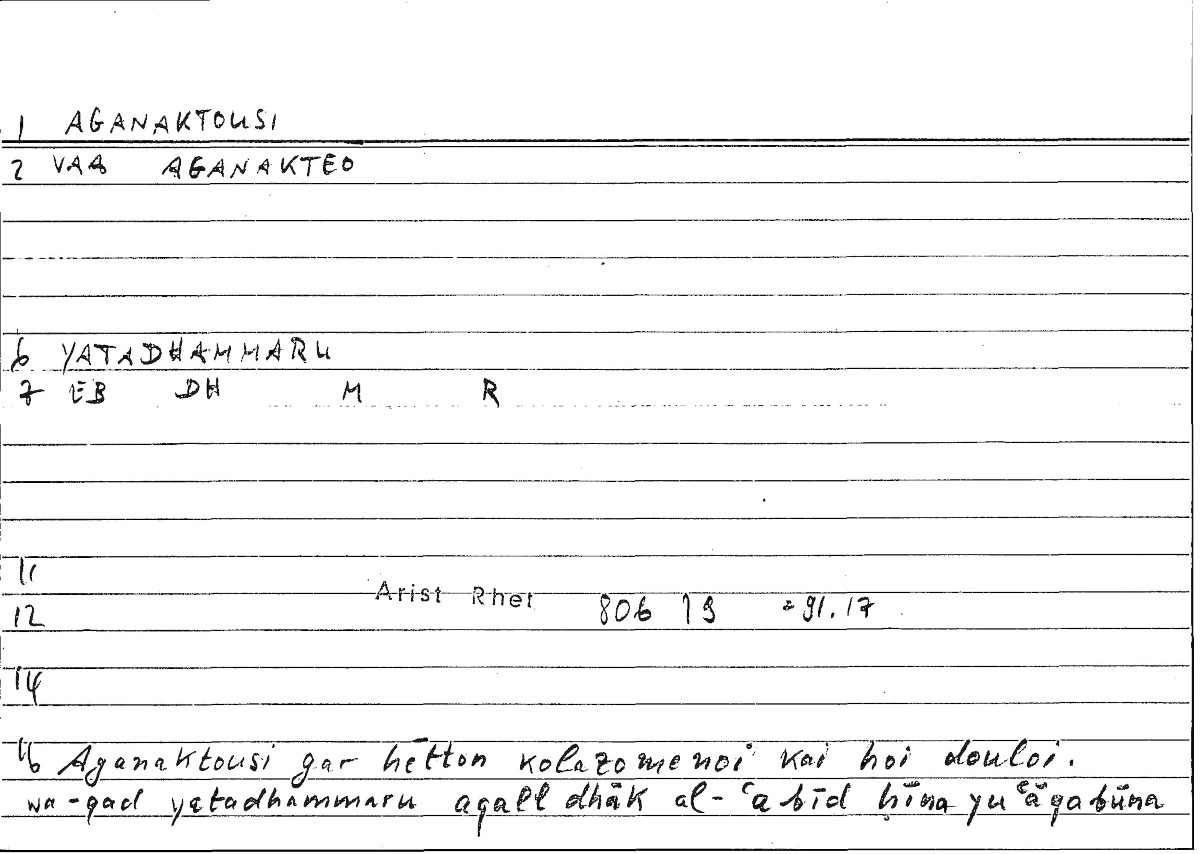 1 AGANAKTOUSI
2 VAA AGANAKTEO
6 YATADHAMMARU
7 EB DH M R
11
Arist Rhet 806 19 = 91.17
12
14
16 Aganaktousi gar hētton kolazomenoi kai hoi douloi.
wa-qad yatadhammaru aqall dhāk al-ʿabīd ḥīna yuʿāqabūna